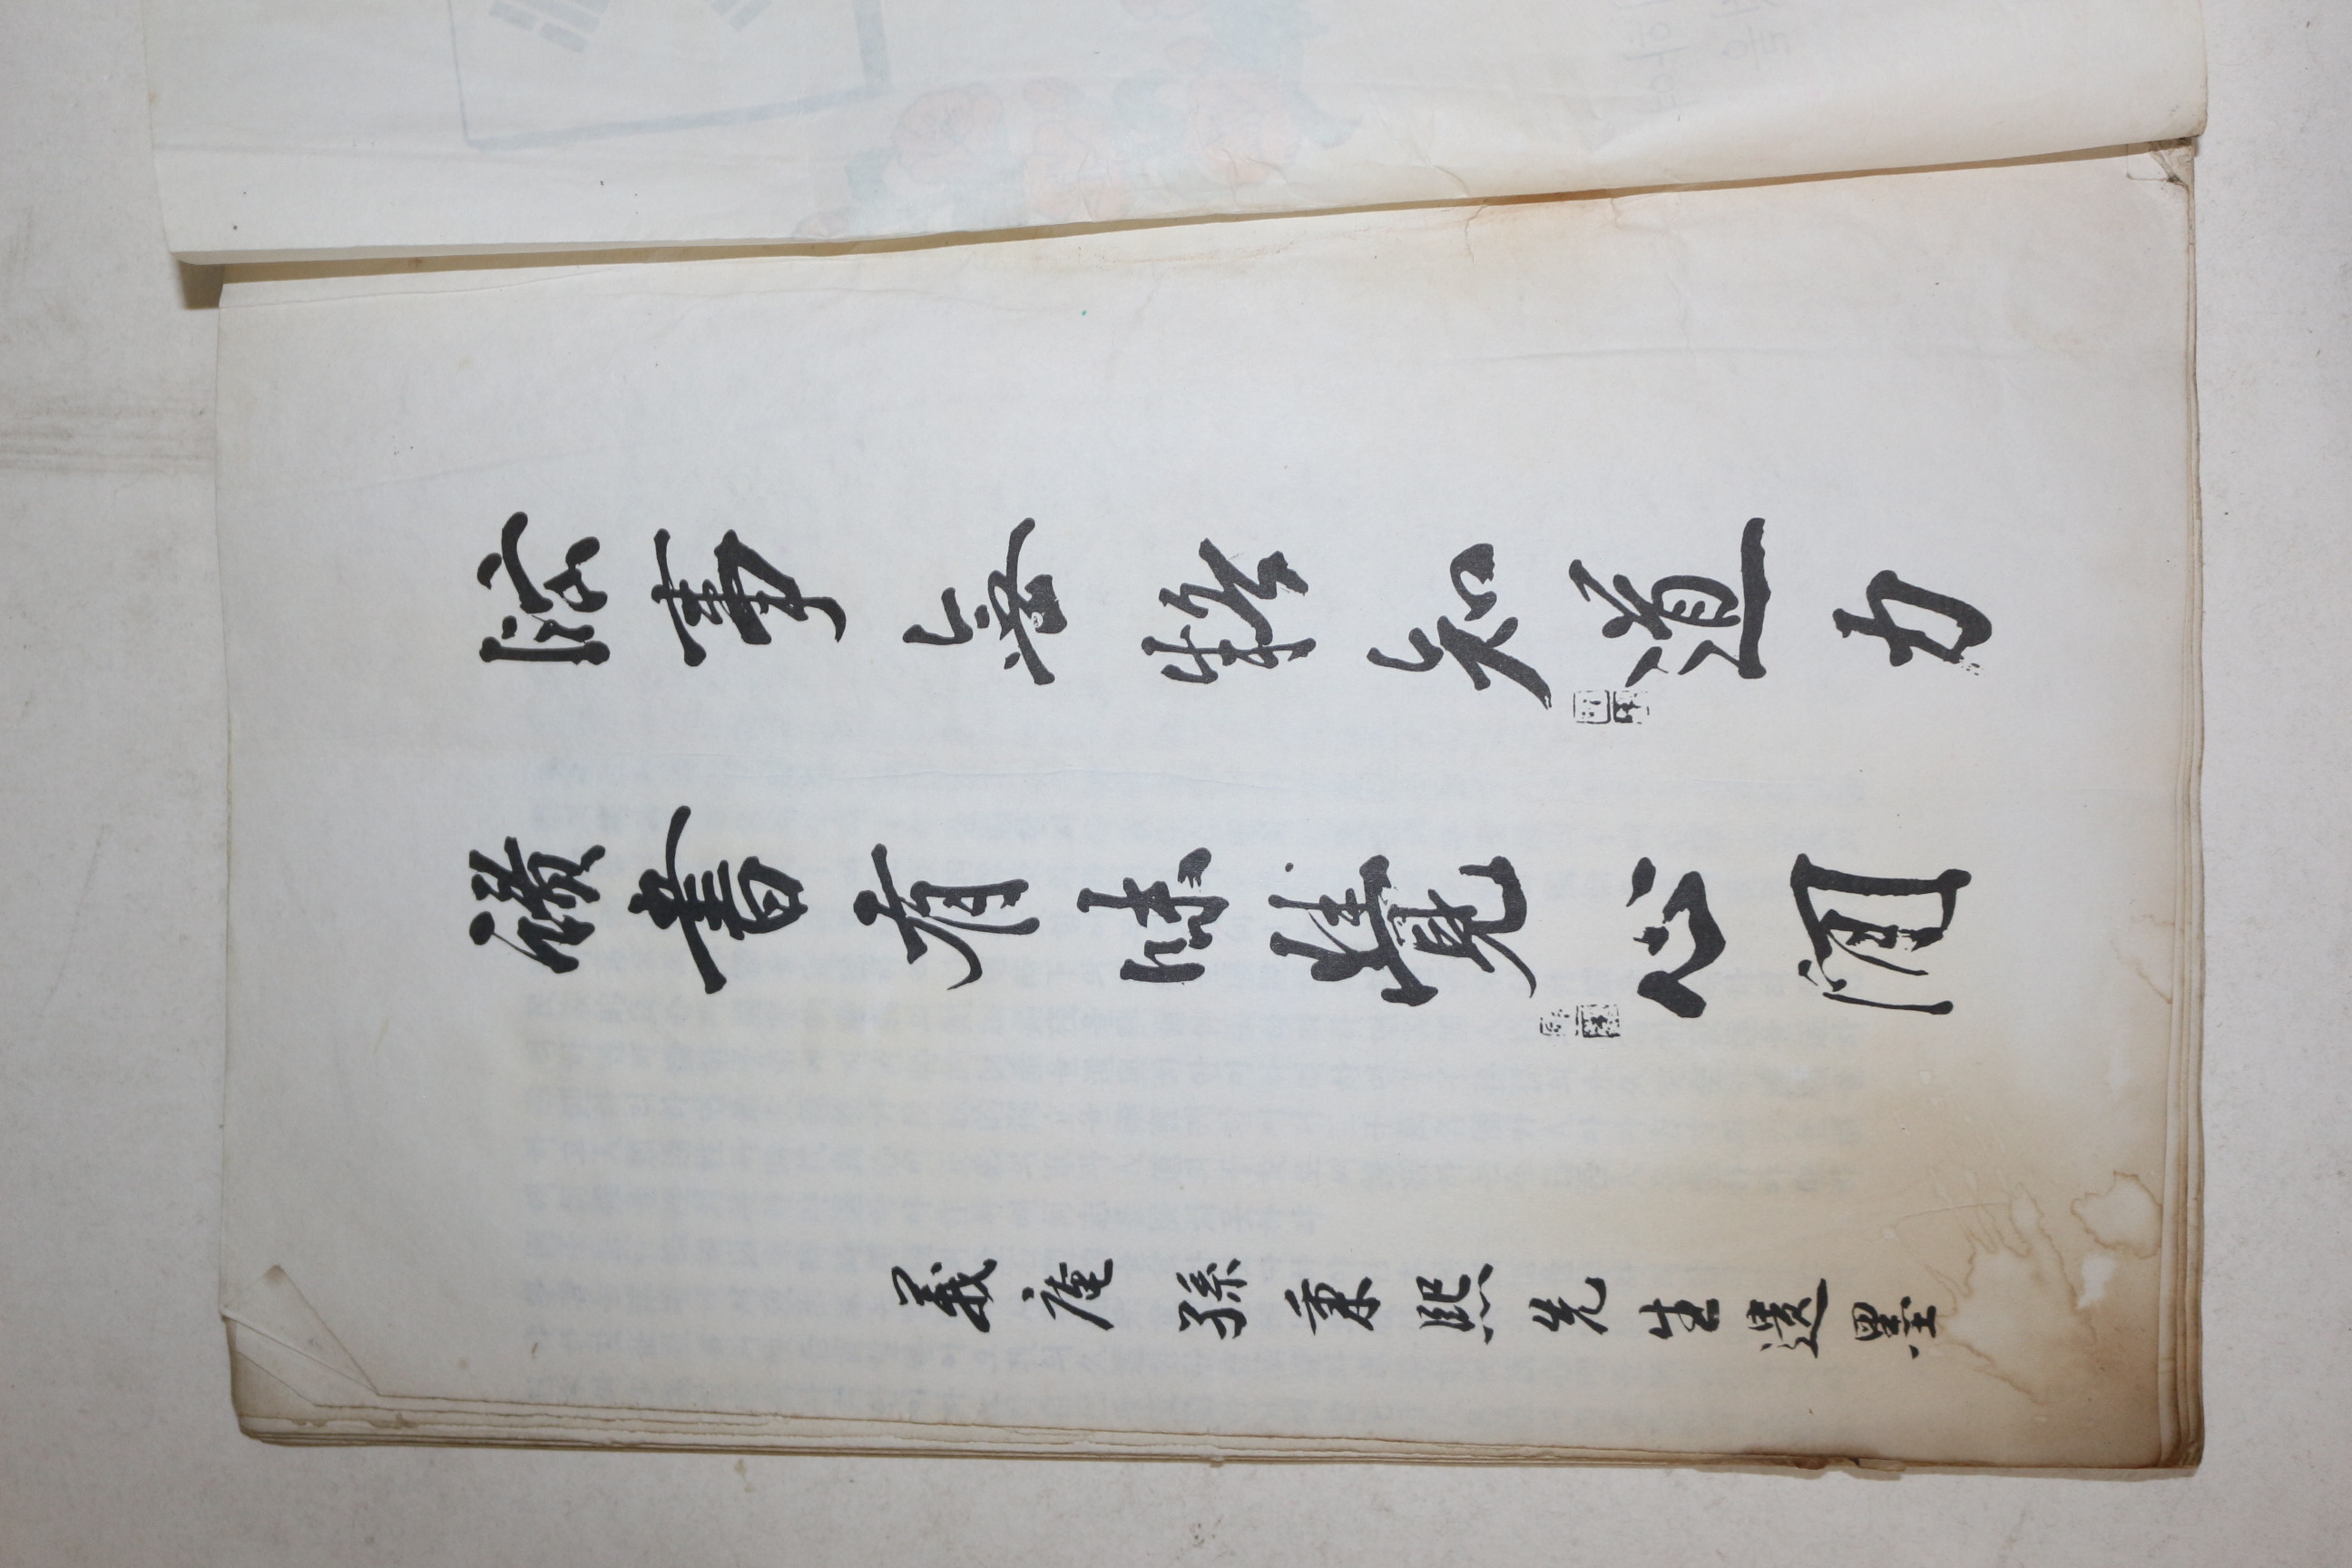 臨事無難知道力
讀書有味覺心閒
義庵孫秉熙先生遺墨